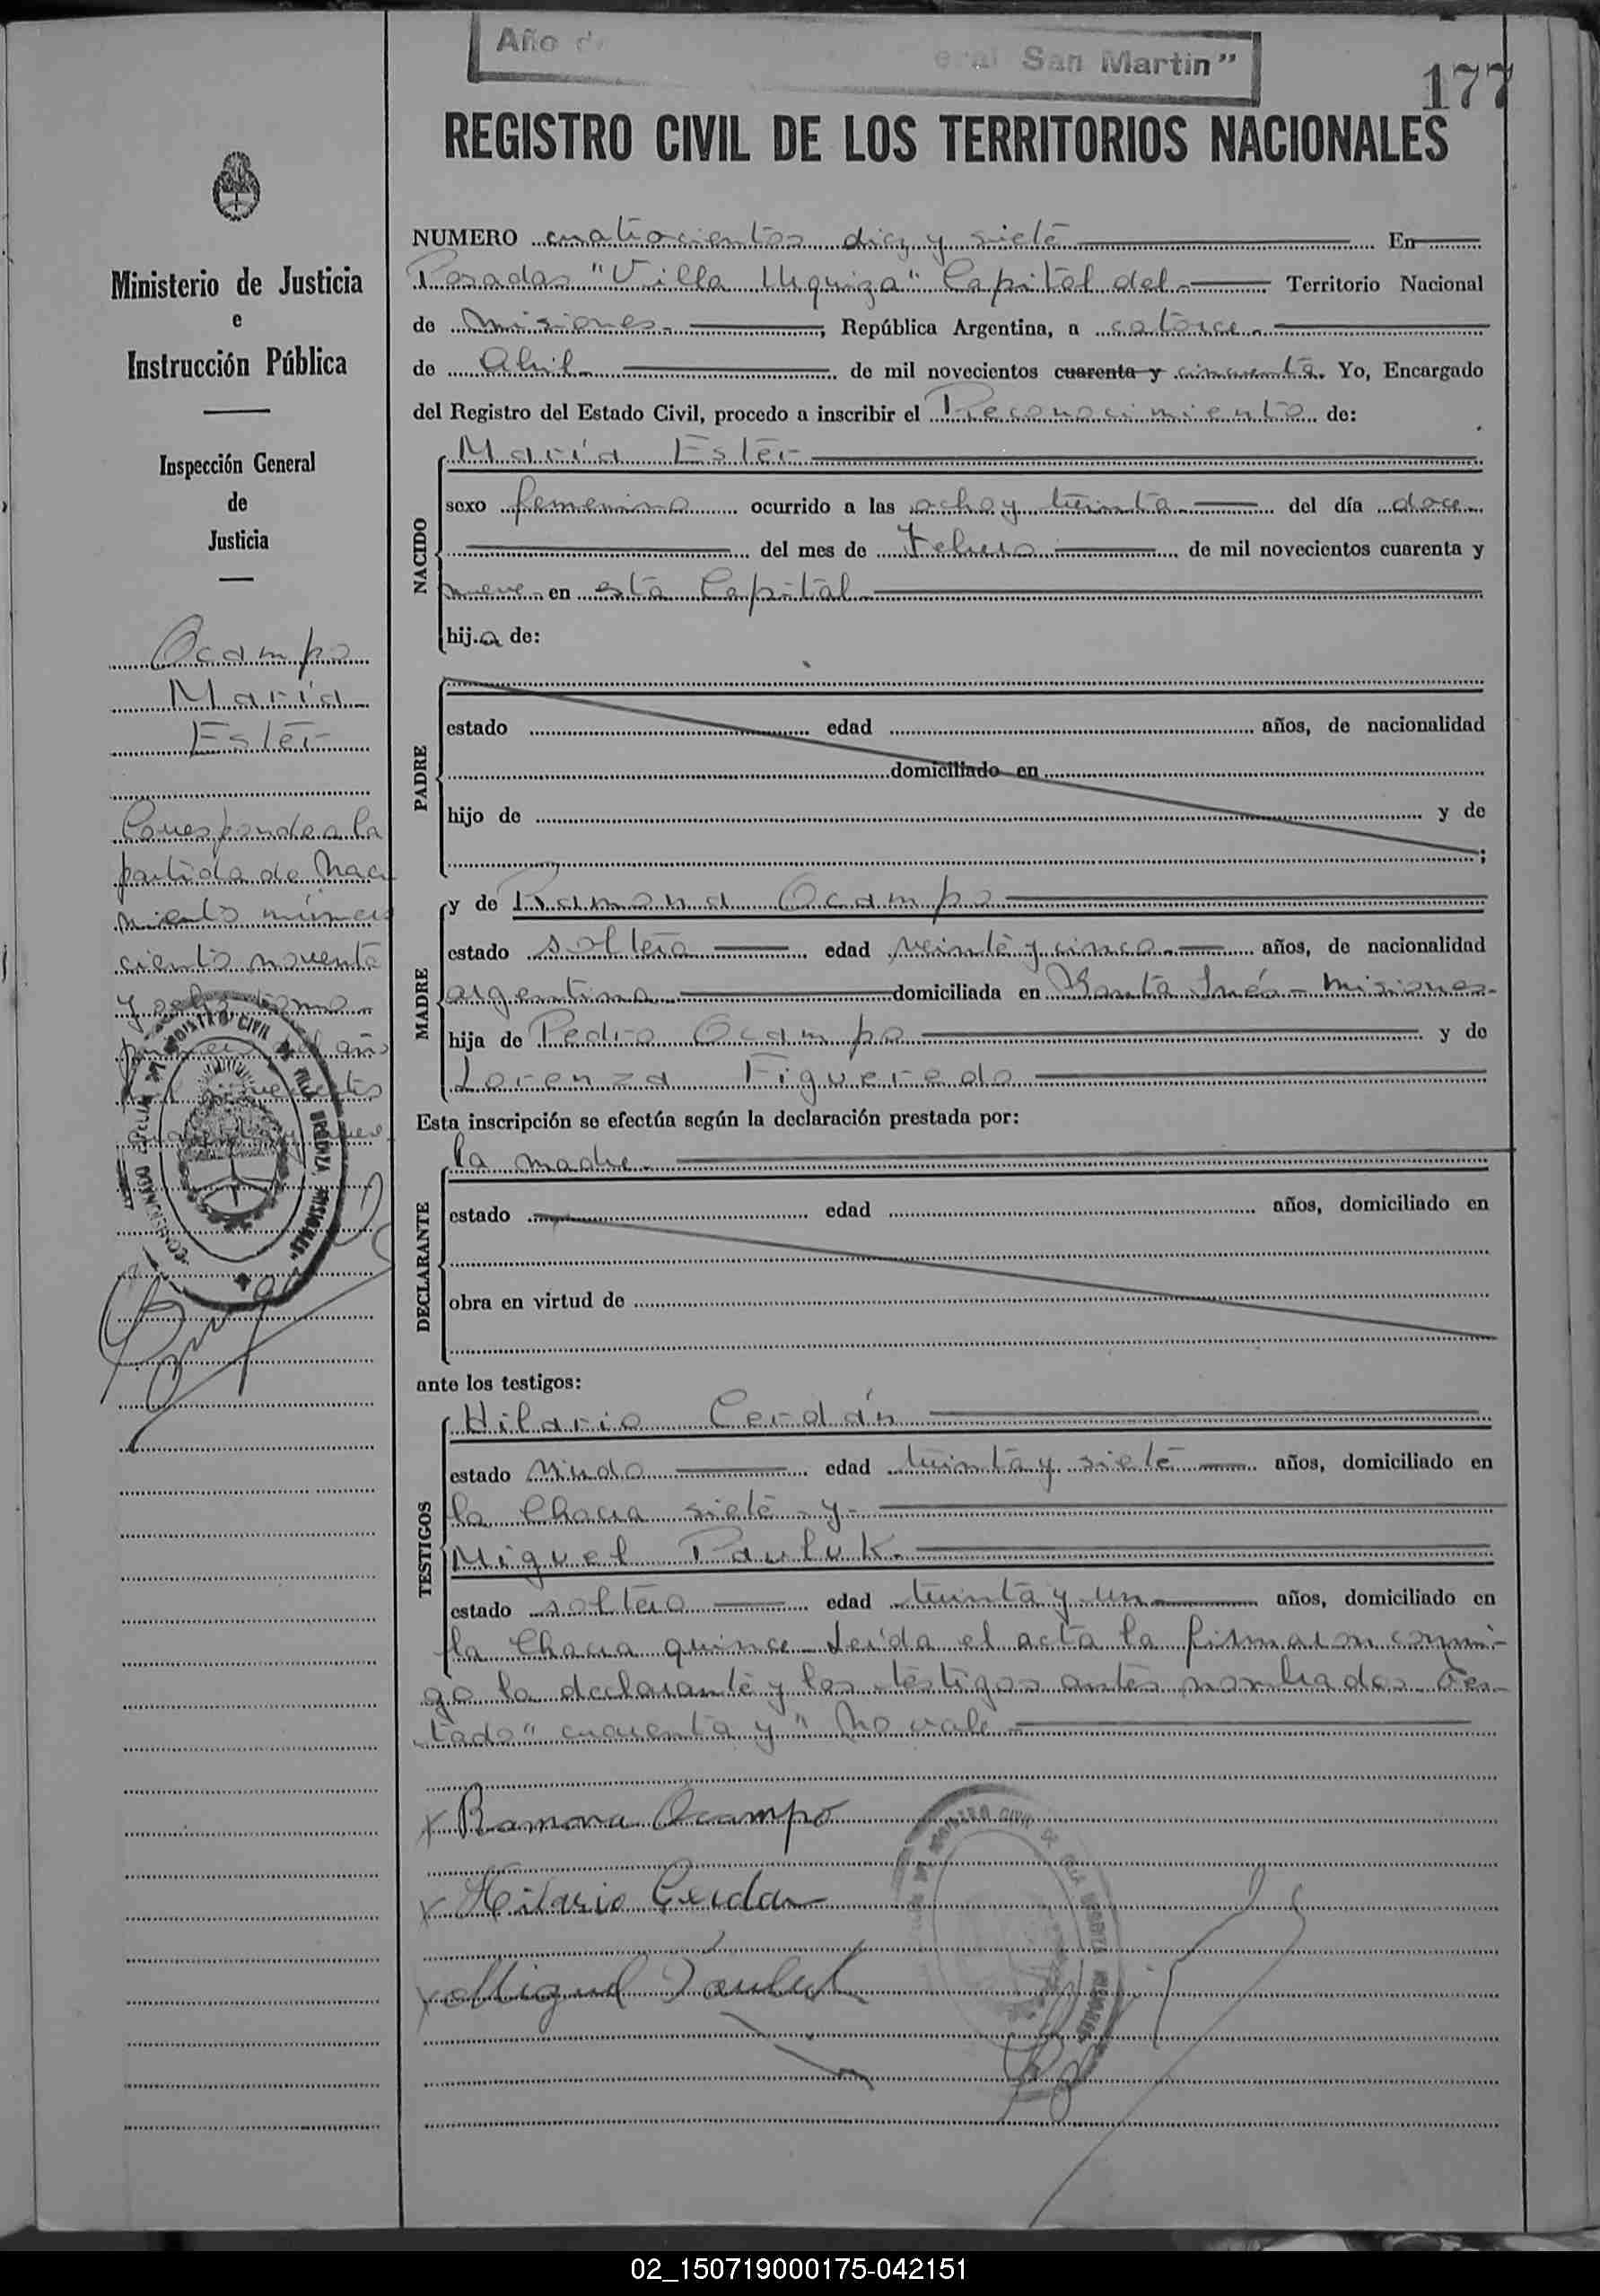 Año d
eral San Martin"
177
REGISTRO CIVIL DE LOS TERRITORIOS NACIONALES
Ministerio de Justicia
e
Instrucción Pública
Inspección General
de
Justicia
Ocampo
María
Ester
Corresponde a la
partida de Naci
miento número
ciento noventa
y ocho tomo
año
NUMERO cuatrocientos diez y siete En
Posadas "Villa Urquiza" Capital del Territorio Nacional
de Misiones. , República Argentina, a catorce.
de Abril de mil novecientos cuarenta y cincuenta. Yo, Encargado
del Registro del Estado Civil, procedo a inscribir el Reconocimiento de:
NACIDO
María Ester
sexo femenino ocurrido a las ocho y treinta del día doce
del mes de Febrero de mil novecientos cuarenta y
nueve en esta Capital
hij.a de:
PADRE
estado edad años, de nacionalidad
domiciliado en
hijo de y de
;
MADRE
y de Ramona Ocampo
estado soltera edad veinte y cinco años, de nacionalidad
argentina domiciliada en Santa Inés - Misiones-
hija de Pedro Ocampo y de
Lorenza Figueredo
Esta inscripción se efectúa según la declaración prestada por:
DECLARANTE
la madre
estado edad años, domiciliado en
obra en virtud de
ante los testigos:
TESTIGOS
Hilario Cerdán
estado viudo edad treinta y siete años, domiciliado en
la Chacra siete y
Miguel Pauluk.
estado soltero edad treinta y un años, domiciliado en
la Chacra quince. Leída el acta la firmaron conmi-
go la declarante y los testigos antes nombrados. Tes-
tado "cuarenta y" No vale
x Ramona Ocampo
x Hilario Cerdan
x Miguel Pauluk
REGISTRO CIVIL DE VILLA URQUIZA MISIONES
02_150719000175-042151